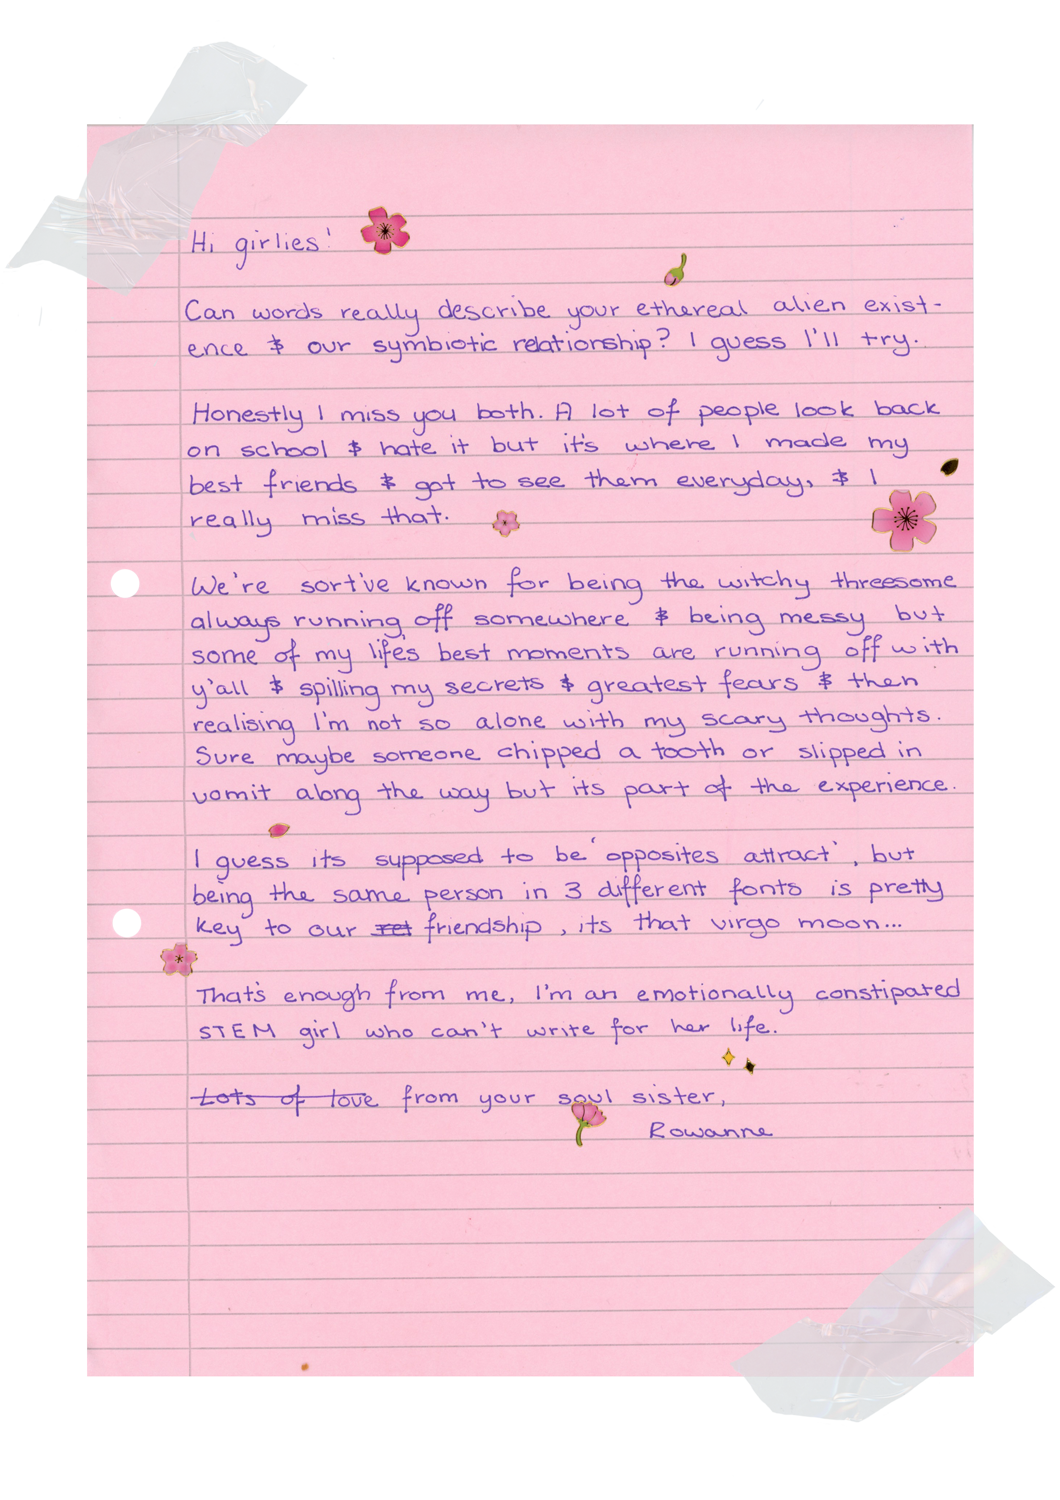 Hi girlies!
Can words really describe your ethereal alien exist-
ence & our symbiotic relationship? I guess I'll try.
Honestly I miss you both. A lot of people look back
on school & hate it but it's where I made my
best friends & got to see them everyday, & I
really miss that.
We're sort've known for being the witchy threesome
always running off somewhere & being messy but
some of my life's best moments are running off with
y'all & spilling my secrets & greatest fears & then
realising I'm not so alone with my scary thoughts.
Sure maybe someone chipped a tooth or slipped in
vomit along the way but its part of the experience.
I guess its supposed to be 'opposites attract', but
being the same person in 3 different fonts is pretty
key to our ret friendship, its that virgo moon...
That's enough from me, I'm an emotionally constipated
STEM girl who can't write for her life.
Lots of love from your soul sister,
Rowanne